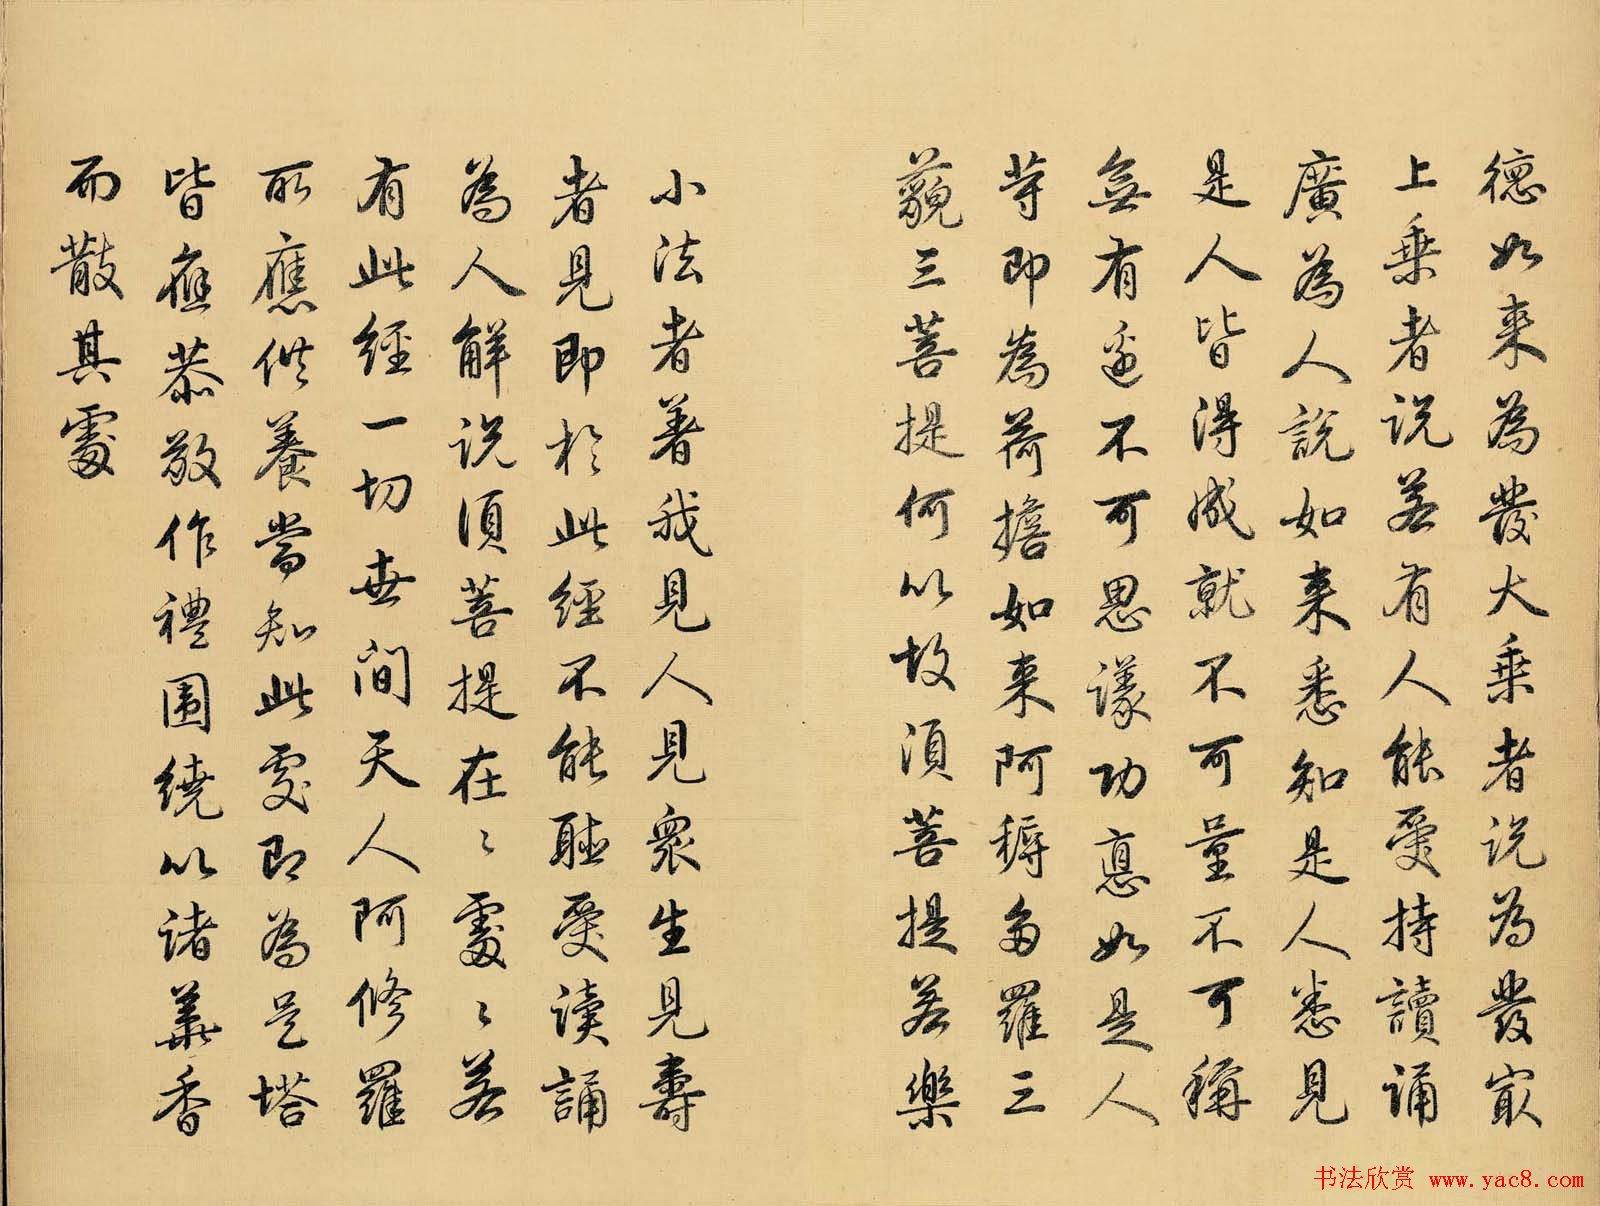 德如来為發大乗者说為發㝡
上乗者说若有人能受持讀诵
廣為人説如来悉知是人悉見
是人皆得成就不可量不可稱
無有邊不可思議功悳如是人
等即為荷擔如来阿耨多羅三
藐三菩提何以故湏菩提若樂
小法者著我見人見衆生見壽
者見即於此經不能聽受读誦
為人解说湏菩提在〻處〻若
有此經一切世间天人阿修羅
所應供養當知此處即為是塔
皆應恭敬作禮围繞以诸華香
而散其處
书法欣赏 www.yac8.com